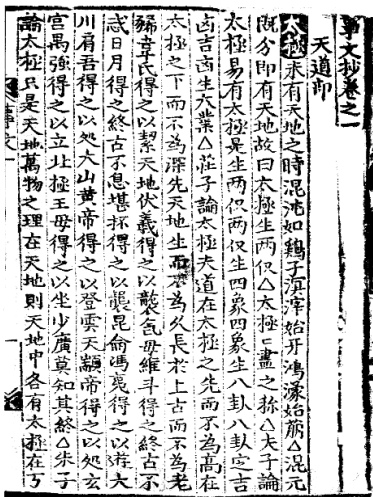 事文抄卷之一
天道部
太極未有天地之時混沌如鷄子溟涬始牙鴻濛始萌△混元
既分即有天地故曰太極生两仪△太極〻盡之称△夫子論
太極易有太極是生两仪两仪生四象四象生八卦八卦定吉
凶吉凶生大業△莊子論太極夫道在太極之先而不為高在
太極之下而不為深先天地生而不為久長於上古而不為老
豨韋氏得之以絜天地伏羲得之以襲氣母維斗得之終古不
忒日月得之終古不息堪坏得之以襲昆侖馮夷得之以游大
川肩吾得之以処大山黄帝得之以登雲天顓帝得之以処玄
宫禺強得之以立北極王母得之以坐少廣莫知其終△朱子
論太極只是天地萬物之理在天地則天地中各有太極在万